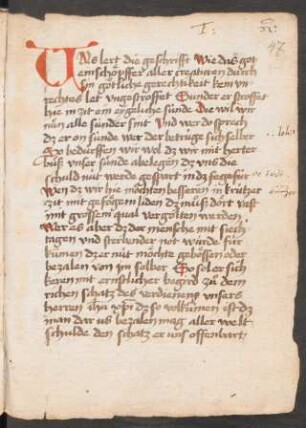 I.
47
Uns lert die geschrifft Wie das got
ein schöpffer aller creaturen durch
sin götliche gerechtikeit kein vn
rechtes let vngestroffet Sunder er stroffet
hie in zit ein yegeliche sünde die wil wir
nun alle sünder sint Und wer do sprech
dz er on sünde wer der betrüge sich selber
So bedurffen wir wol dz wir mit herter
buß vnser sünde ablegen dz vns die
schuld nüt werde gespart in dz fegefür
Wen dz wir hie möchten besseren in kurtzer
zit mit gefögem liden dz müß dört vast
mit grossem qual vergolten werden
Wer es aber dz der mensche mit siech
tagen vnd sterbender not würde für
kumen dz er nüt möchte gebössen oder
bezalen von im selber So sol er sich
keren mit ernstlicher begird zu dem
richen schatz des verdienens vnsers
herren dz so volkumen ist dz
man dar us bezalen mag aller welt
schulde den schatz er uns offenbart